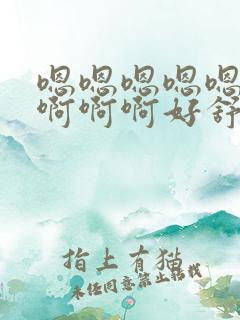 嗯嗯嗯嗯嗯
啊啊啊好舒
指上有猫
未经同意禁止转载